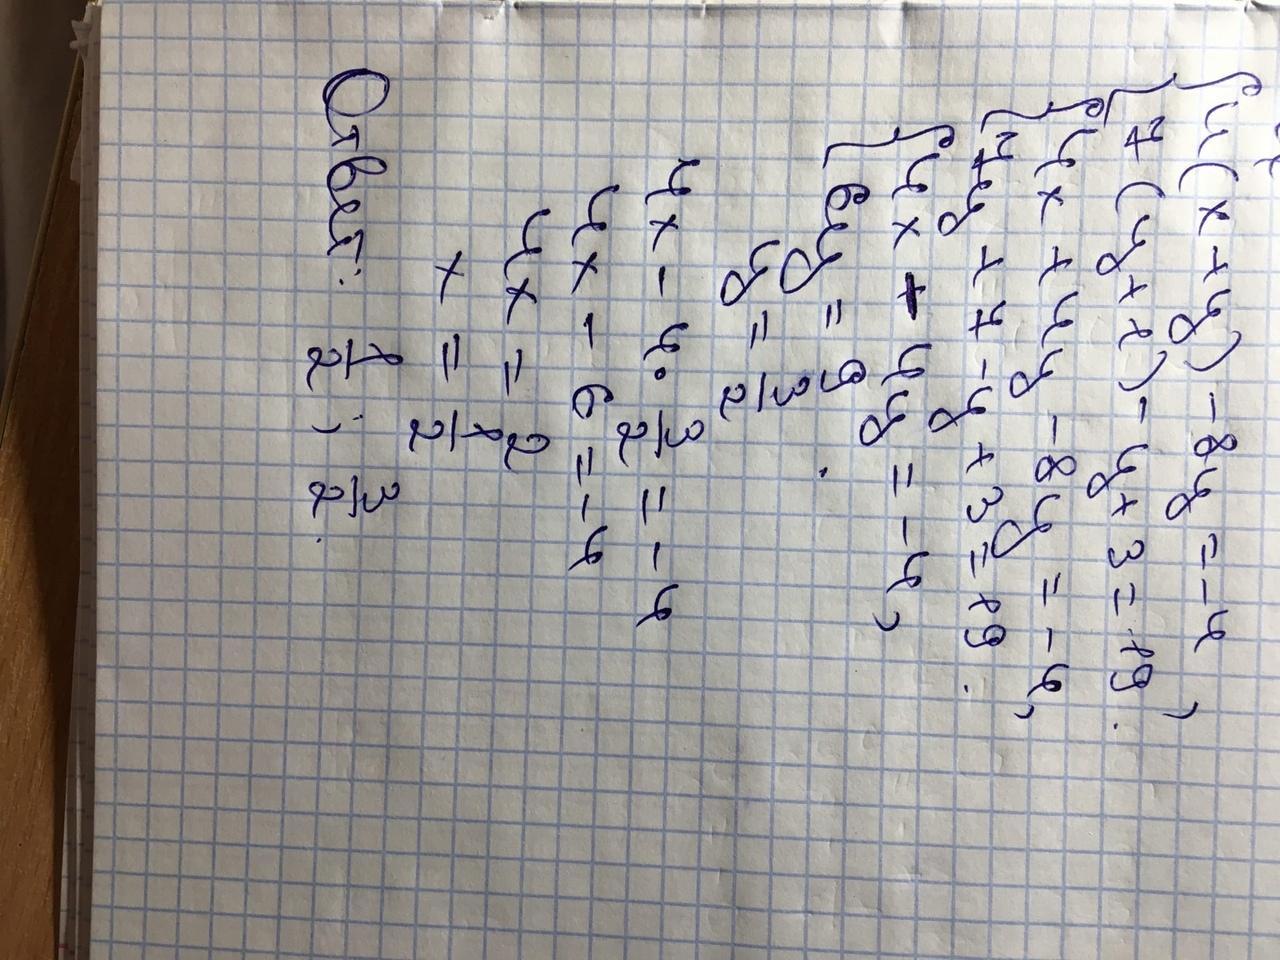 4(x+y)-8y=-4,
7(y+1)-y+3=19.
4x+4y-8y=-4,
7y+7-y+3=19.
4x+4y=-4,
6y=9.
y=3/2
4x-4·3/2=-4
4x-6=-4
4x=2
x=1/2
Ответ: 1/2; 3/2.